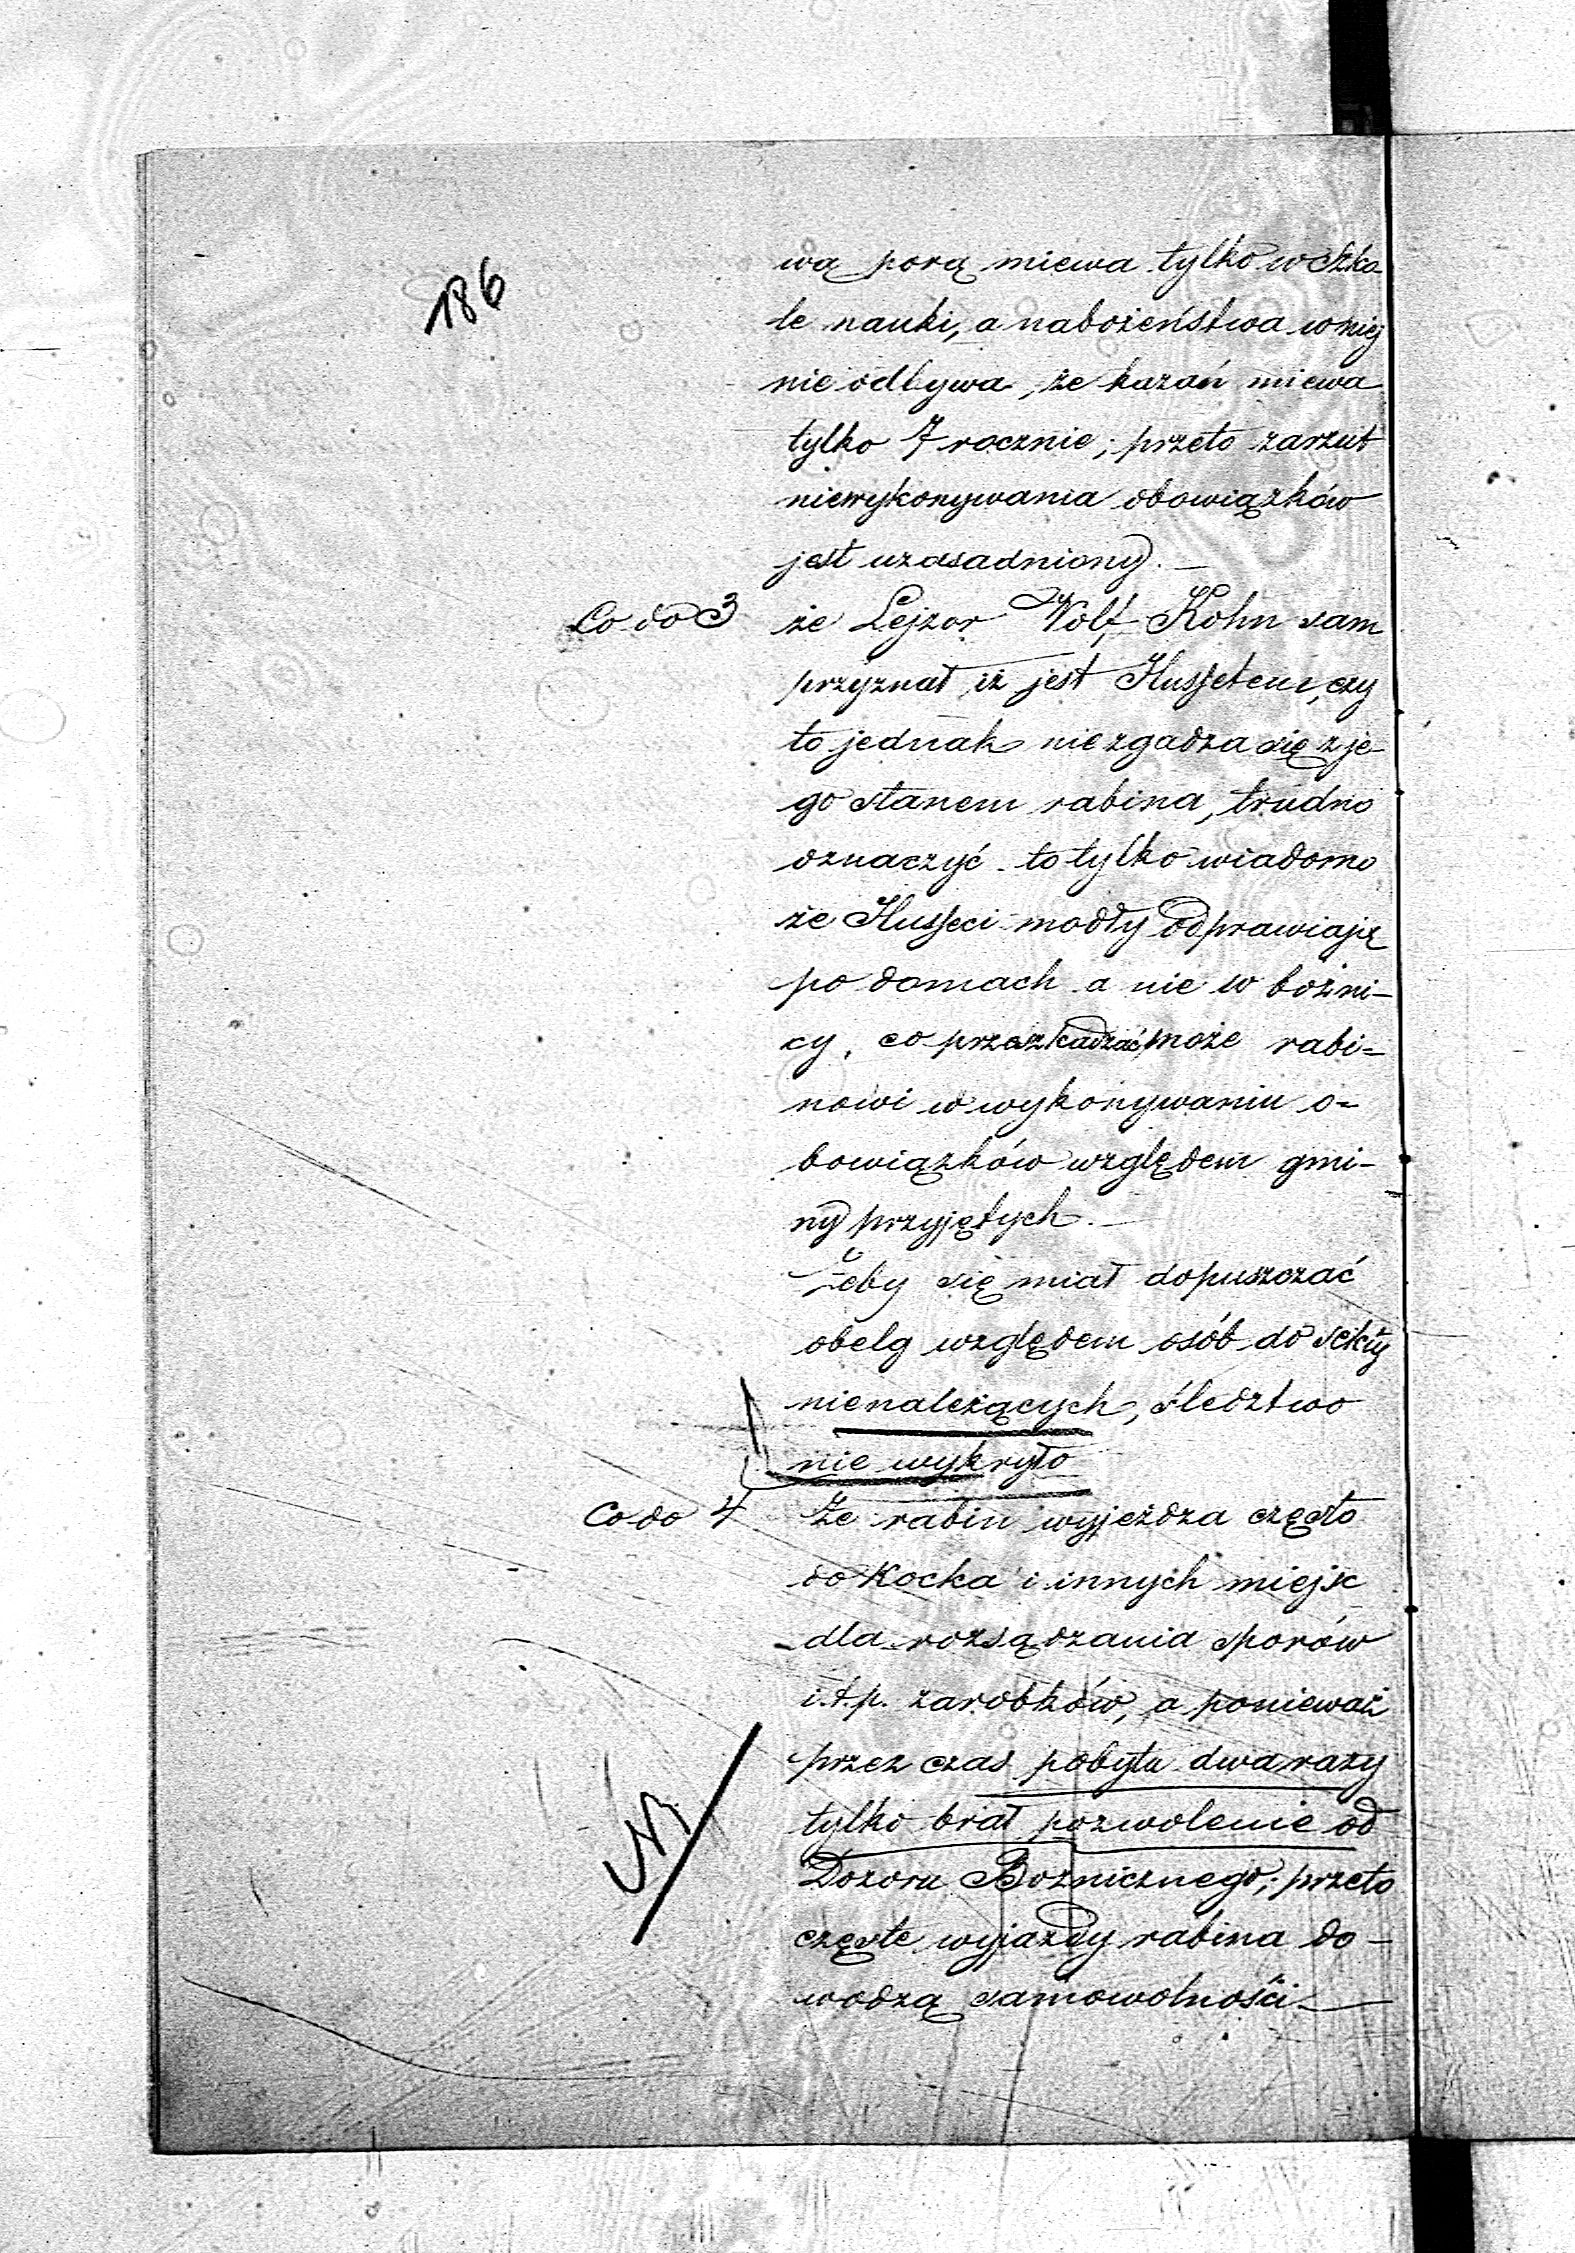 186
wą porą miewa tylko w szko
le nauki, a nabożeństwa w niej
nie odbywa, że kazań miewa
tylko 7 rocznie; przeto zarzut
niewykonywania obowiązków
jest uzasadniony. —
Co do 3 że Lejzor Wolf Kohn sam
przyznał iż jest Hussetem, czy
to jednak niezgadza się z je-
go stanem rabina, trudno
oznaczyć to tylko wiadomo
że Husseci modły odprawiają
po domach a nie w bożni-
cy, co przeszkadzać może rabi=
nowi w wykonywaniu o=
bowiązków względem gmi-
ny przyjętych. —
Żeby się miał dopuszczać
obelg względem osób do sekty
nienależących, śledztwo
nie wykryło
Co do 4 Że rabin wyjeżdza często
do Kocka i innych miejsc
dla rozsądzania sporów
i t.p. zarobków, a ponieważ
przez czas pobytu dwa razy
tylko brał pozwolenie od
Dozoru Bożnicznego; przeto
częste wyjazdy rabina do-
wodzą samowolności —